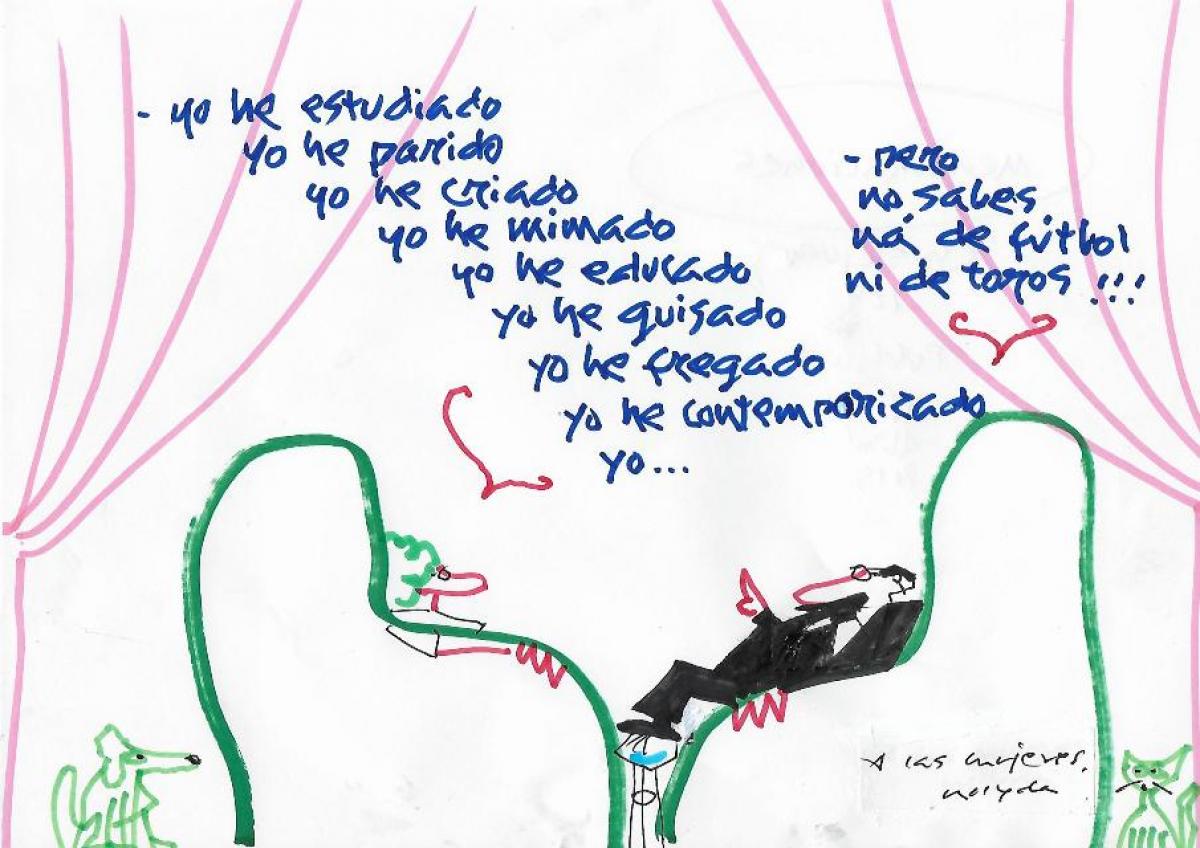 - yo he estudiado
yo he parido
yo he criado
yo he mimado
yo he educado
yo he guisado
yo he fregado
yo he contemporizado
yo...
- pero
no sabes
ná de fútbol
ni de toros !!!
A las mujeres.